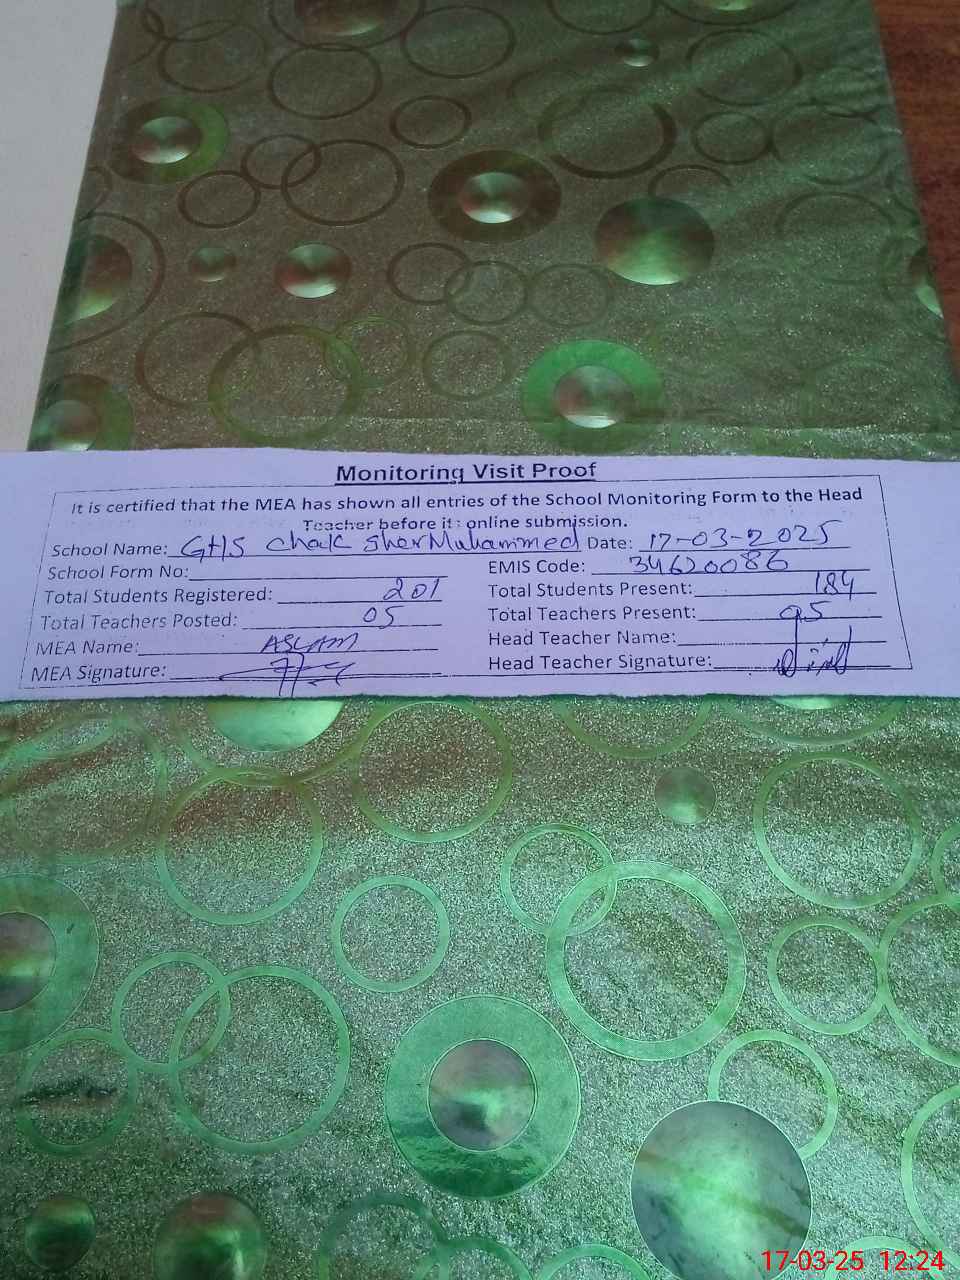 Monitoring Visit Proof
It is certified that the MEA has shown all entries of the School Monitoring Form to the Head
Teacher before its online submission.
School Name: GHS Chak Sher Muhammed Date: 17-03-2025
School Form No: EMIS Code: 34620086
Total Students Registered: 201 Total Students Present: 184
Total Teachers Posted: 05 Total Teachers Present: 05
MEA Name: ASLAM Head Teacher Name:
MEA Signature: Head Teacher Signature:
17-03-25 12:24